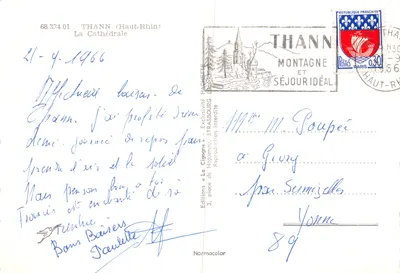 68 334.01 THANN (Haut-Rhin)
La Cathédrale
21-4-1966
Affectueux baisers de
Thann. J'ai profité d'une
demi journée de repos pour
prendre l'air et le soleil
Nous pensons bien à toi.
est enchanté de sa
Bons Baisers
Paulette
Editions "La Cigogne"
STRASBOURG
Reproduction interdite
Normacolor
THANN
MONTAGNE
ET
SÉJOUR IDÉAL
PARIS 0,30
THANN
HAUT-RHIN
Mme M. Poupée
à Givry
par Sermizelles
Yonne
89